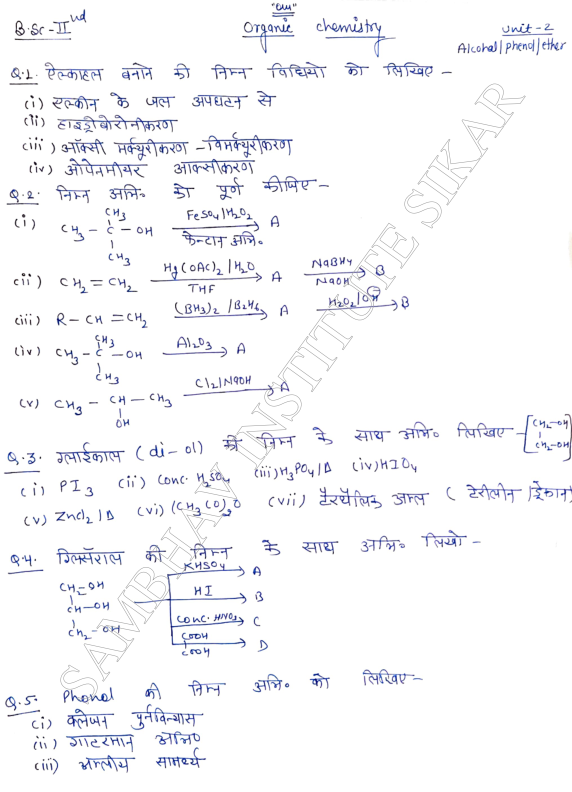 "ω"
B.Sc-IInd Organic chemistry Unit-2
Alcohal/phenol/ether
Q.1. ऐल्काहल बनाने की निम्न विधियो को लिखिए -
(i) एल्कीन के जल अपघटन से
(ii) हाइड्रीबोरोनीकरण
(iii) ऑक्सी मर्क्यूरीकरण - विमर्क्यूरीकरण
(iv) ओपेनमीयर आक्सीकरण
Q.2. निम्न अभि॰ को पूर्ण कीजिए -
CH3
(i) CH3 - C - OH FeSO4/H2O2 A
फेन्टान अभि॰
CH3
(ii) CH2 = CH2 Hg(OAc)2/H2O A NaBH4 B
THF NaOH
(iii) R - CH = CH2 (BH3)2/B2H6 A H2O2/OH B
CH3
(iv) CH3 - C - OH Al2O3 A
CH3
(v) CH3 - CH - CH3 Cl2/NaOH A
OH
Q.3. ग्लाईकाल (di-ol) की निम्न के साथ अभि॰ लिखिए - [CH2-OH
CH2-OH]
(i) PI3 (ii) Conc. H2SO4 (iii) H3PO4/Δ (iv) HIO4
(v) ZnCl2/Δ (vi) (CH3CO)2O (vii) टैरथैलिक अम्ल (टेरीलीन/डेक्रान)
Q.4. ग्लिसॅराल की निम्न के साथ अभि॰ लिखो -
KHSO4 A
CH2-OH
CH-OH HI B
CH2-OH Conc. HNO3 C
COOH
COOH D
Q.5. Phonol की निम्न अभि॰ को लिखिए -
(i) क्लेजन पुर्नविन्यास
(ii) गाटरमान अभि॰
(iii) अम्लीय सामर्थ्य
SAMBHAV INSTITUTE SIKAR